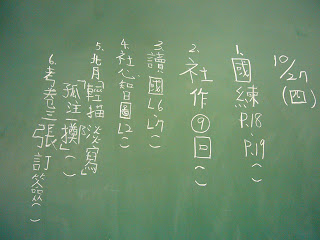 10/27 (四)
1. 國練 P.18-P.19 ( )
2. 社作⑨回( )
3. 讀國L6-L7
4. 社心智圖L2( )
5. 背「輕描淡寫
孤注一擲」( )
6. 考卷三張訂簽( )